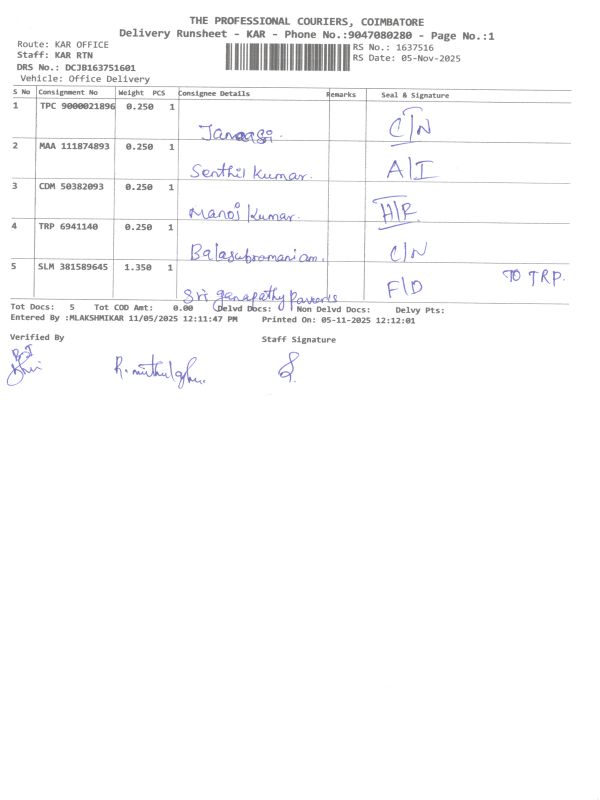 THE PROFESSIONAL COURIERS, COIMBATORE
Delivery Runsheet - KAR - Phone No.:9047080280 - Page No.:1
Route: KAR OFFICE
Staff: KAR RTN
RS No.: 1637516
DRS No.: DCJB163751601
RS Date: 05-Nov-2025
Vehicle: Office Delivery
S No Consignment No Weight PCS Consignee Details Remarks Seal & Signature
1 TPC 9000021896 0.250 1 C/N
2 MAA 111874893 0.250 1 Senthil Kumar. A/I
3 CDM 50382093 0.250 1 Manoj Kumar. H/R
4 TRP 6941140 0.250 1 Balasubramaniam. C/N
5 SLM 381589645 1.350 1 Sri ganapathy F/D TO TRP.
Tot Docs: 5 Tot COD Amt: 0.00 Delvd Docs: Non Delvd Docs: Delvy Pts:
Entered By :MLAKSHMIKAR 11/05/2025 12:11:47 PM Printed On: 05-11-2025 12:12:01
Verified By Staff Signature